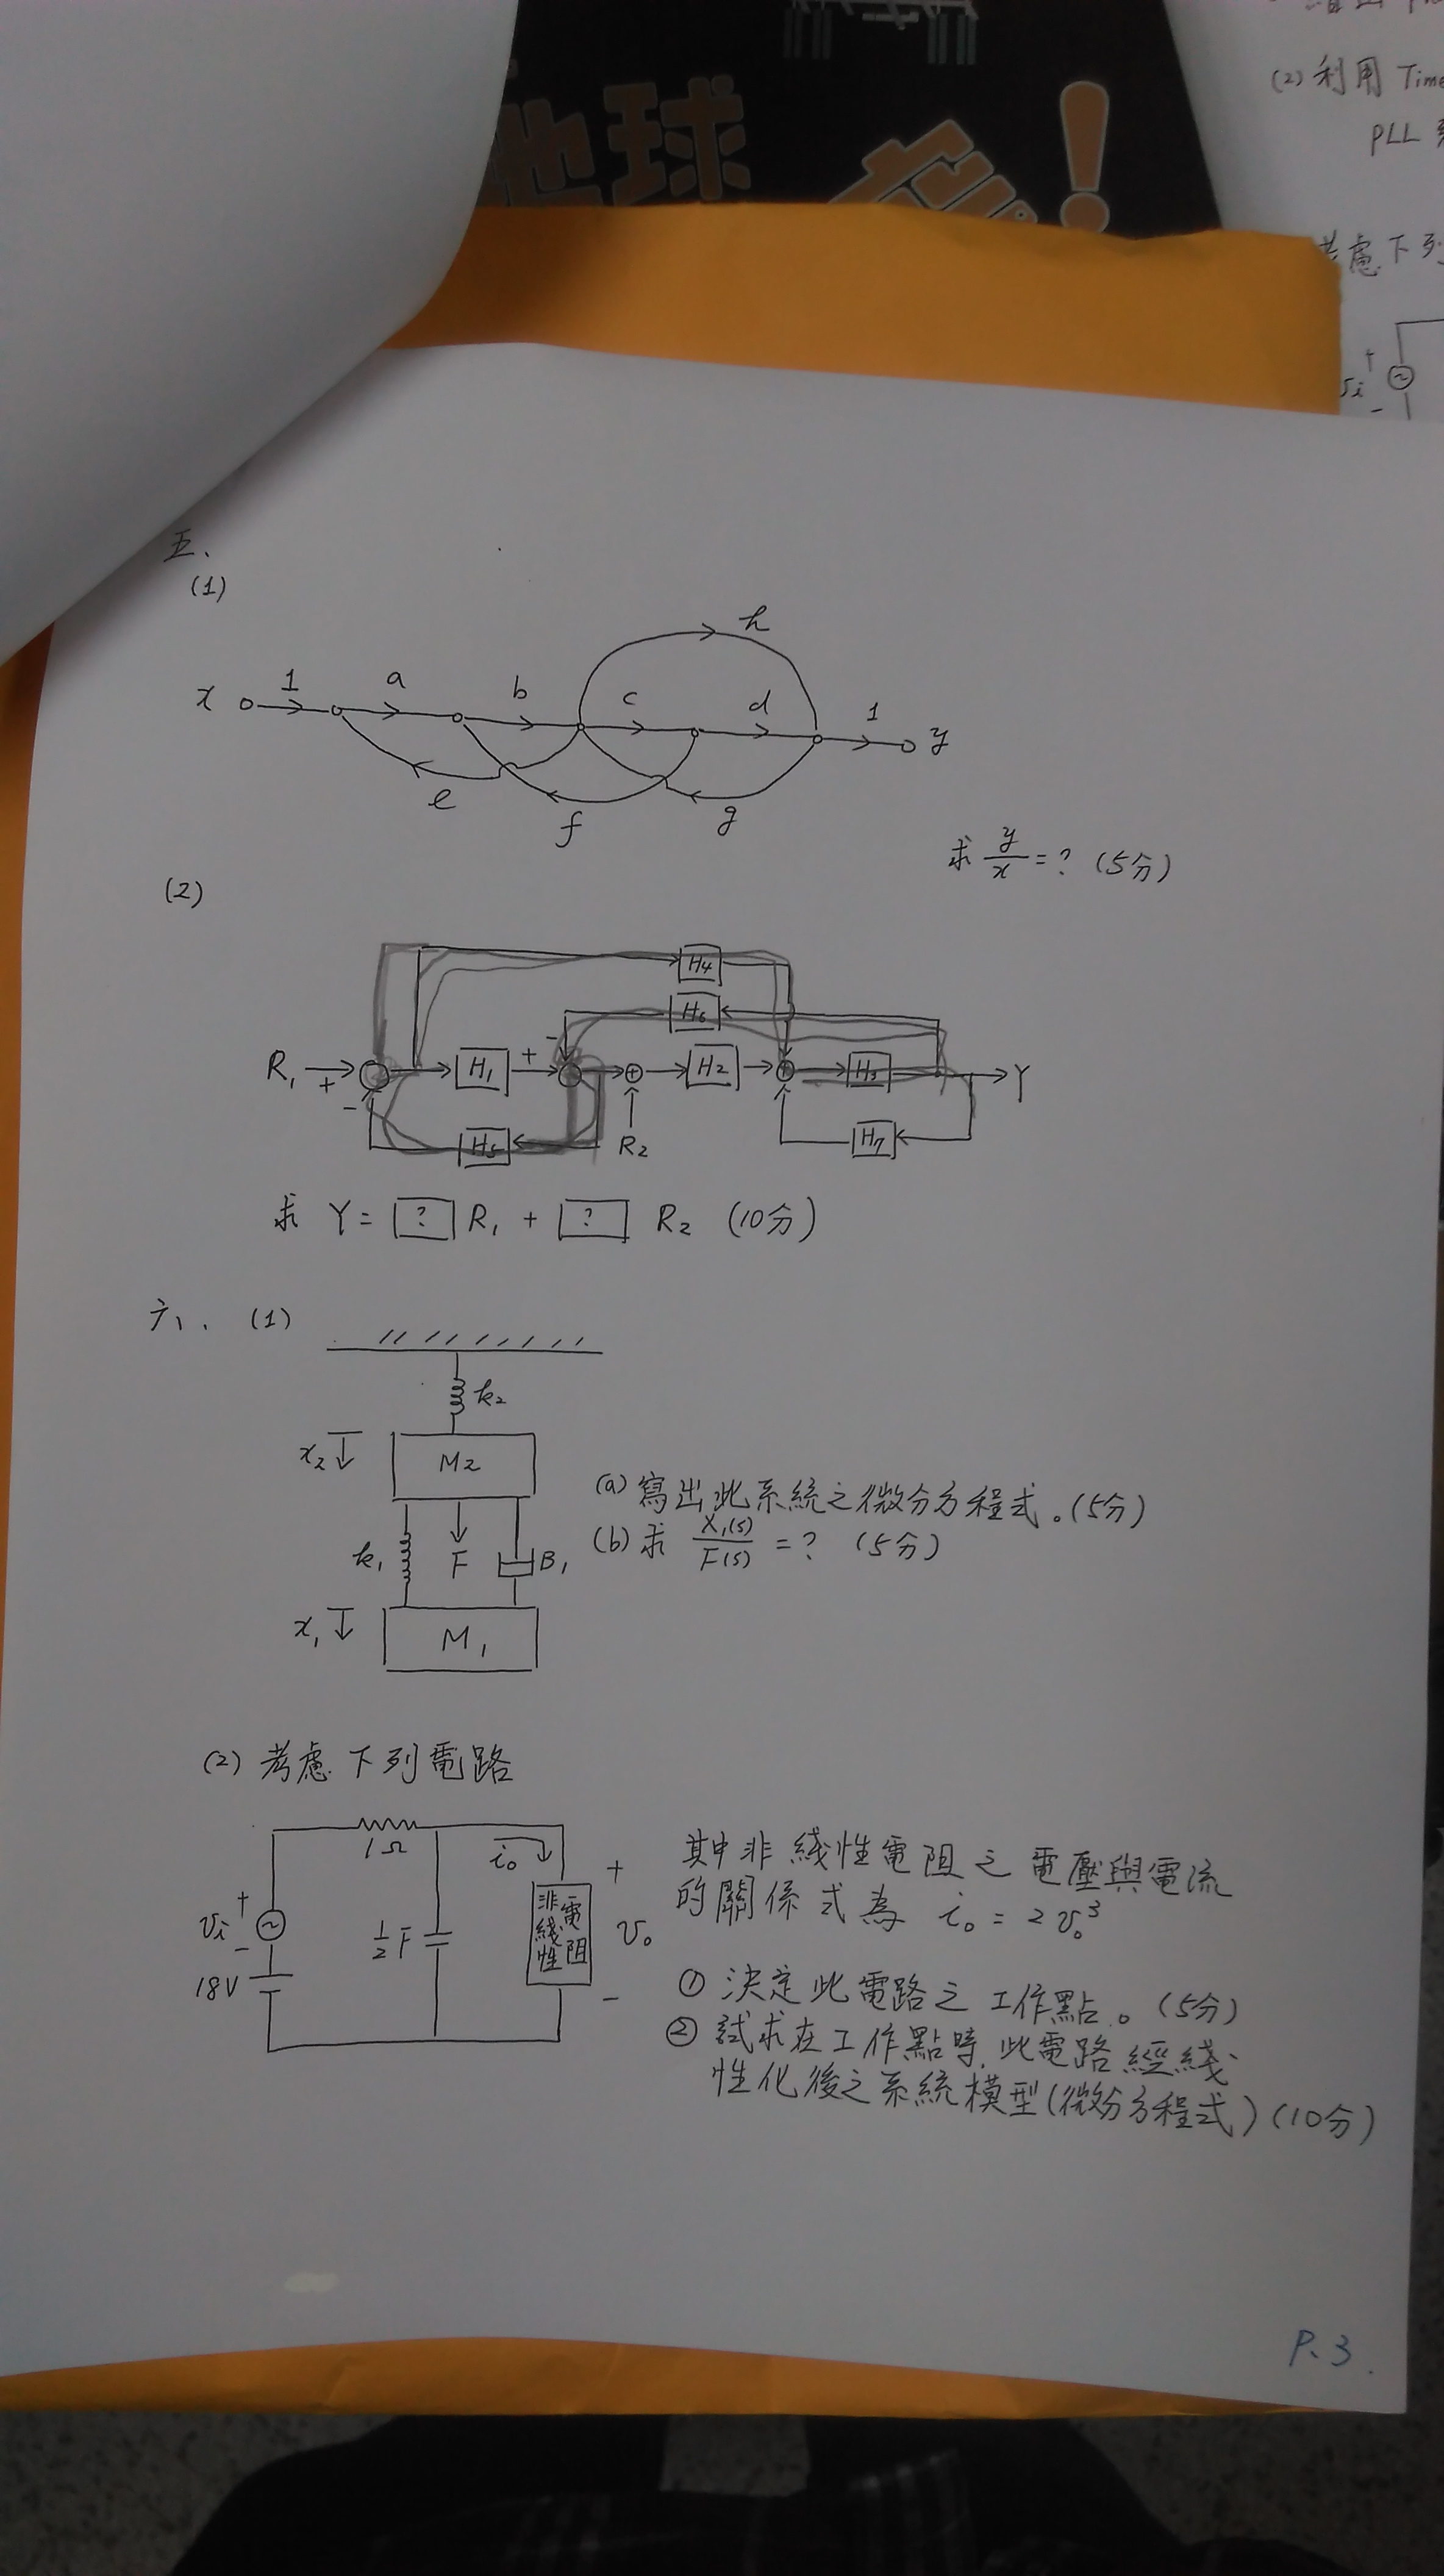 地球
!
(2) 利用 Time
PLL
考慮下列
+
vi
-
五、
(1)
h
x 1 a b c d 1 y
e f g
求 y/x = ? (5分)
(2)
H4
H6
R1 + - H1 + - + H2 + H3 Y
H5 R2 H7
求 Y = [?] R1 + [?] R2 (10分)
六、 (1)
k2
x2 M2
(a) 寫出此系統之微分方程式。(5分)
(b) 求 X1(s)/F(s) = ? (5分)
k1 F B1
x1 M1
(2) 考慮下列電路
1Ω
i0
vi + -
18V
1/2 F
非線性電阻
+ v0 -
其中非線性電阻之電壓與電流
的關係式為 i0 = 2 v0³
① 決定此電路之工作點。(5分)
② 試求在工作點時,此電路經線
性化後之系統模型(微分方程式)(10分)
P.3.